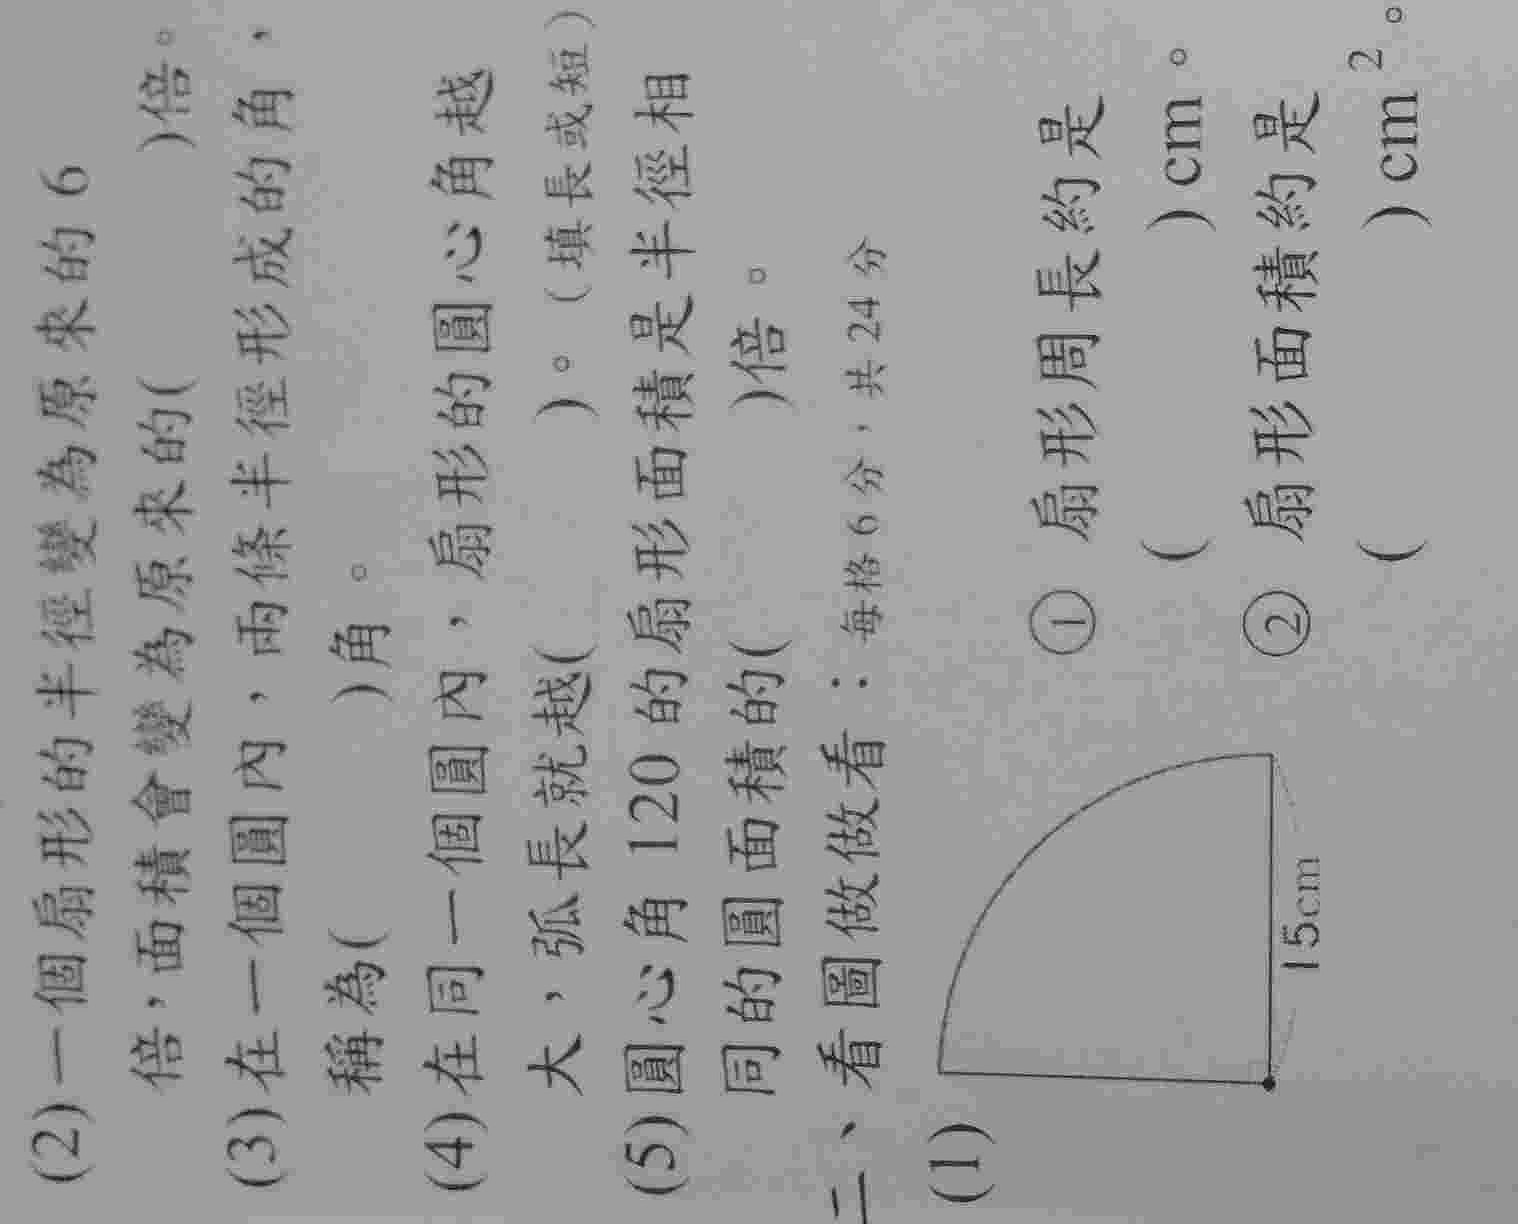 (2)一個扇形的半徑變為原來的6
倍，面積會變為原來的(　　　)倍。
(3)在一個圓內，兩條半徑形成的角，
稱為(　　　)角。
(4)在同一個圓內，扇形的圓心角越
大，弧長就越(　　　)。(填長或短)
(5)圓心角 120 的扇形面積是半徑相
同的圓面積的(　　　)倍。
二、看圖做做看：每格6分，共24分
(1)
15cm
① 扇形周長約是
(　　　)cm。
② 扇形面積約是
(　　　)cm²。